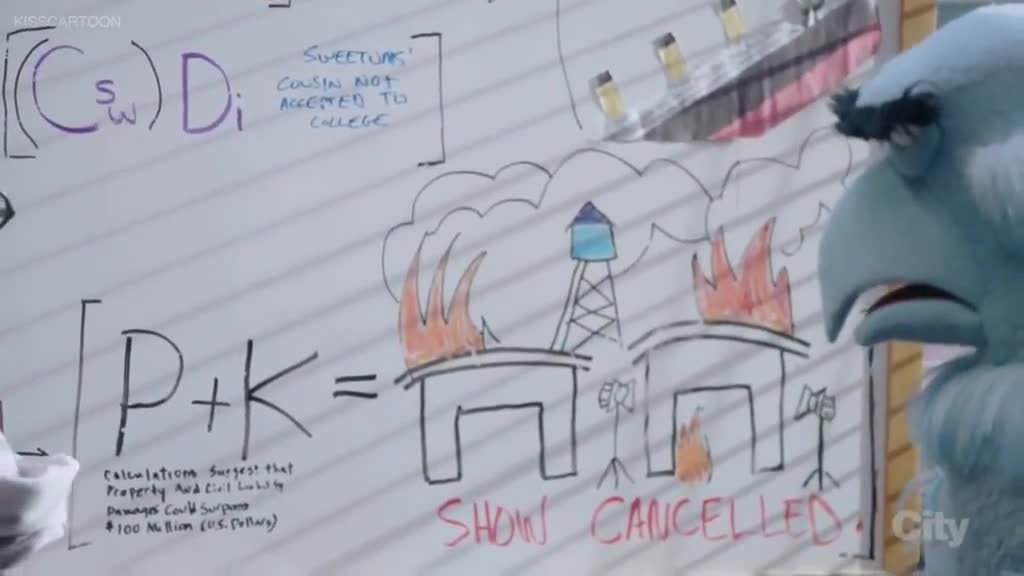 KISSCARTOON
(Csw) Di
SWEETUMS'
COUSIN NOT
ACCEPTED TO
COLLEGE
P+K =
Calculations Suggest that
Property And Civil Liability
Damages Could Surpass
$100 Million (U.S. Dollars)
SHOW CANCELLED.
City